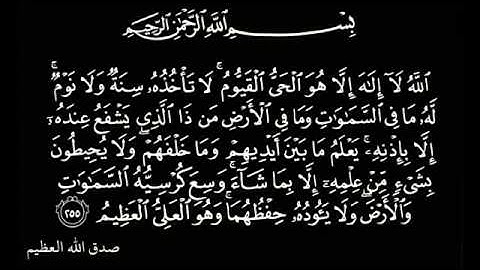 بِسْمِ ٱللَّهِ ٱلرَّحْمَٰنِ ٱلرَّحِيمِ
ٱللَّهُ لَآ إِلَٰهَ إِلَّا هُوَ ٱلْحَىُّ ٱلْقَيُّومُ ۚ لَا تَأْخُذُهُۥ سِنَةٌ وَلَا نَوْمٌ ۚ
لَّهُۥ مَا فِى ٱلسَّمَٰوَٰتِ وَمَا فِى ٱلْأَرْضِ ۗ مَن ذَا ٱلَّذِى يَشْفَعُ عِندَهُۥٓ
إِلَّا بِإِذْنِهِۦ ۚ يَعْلَمُ مَا بَيْنَ أَيْدِيهِمْ وَمَا خَلْفَهُمْ ۖ وَلَا يُحِيطُونَ
بِشَىْءٍ مِّنْ عِلْمِهِۦٓ إِلَّا بِمَا شَآءَ ۚ وَسِعَ كُرْسِيُّهُ ٱلسَّمَٰوَٰتِ
وَٱلْأَرْضَ ۖ وَلَا يَـُٔودُهُۥ حِفْظُهُمَا ۚ وَهُوَ ٱلْعَلِىُّ ٱلْعَظِيمُ ٢٥٥
صدق الله العظيم